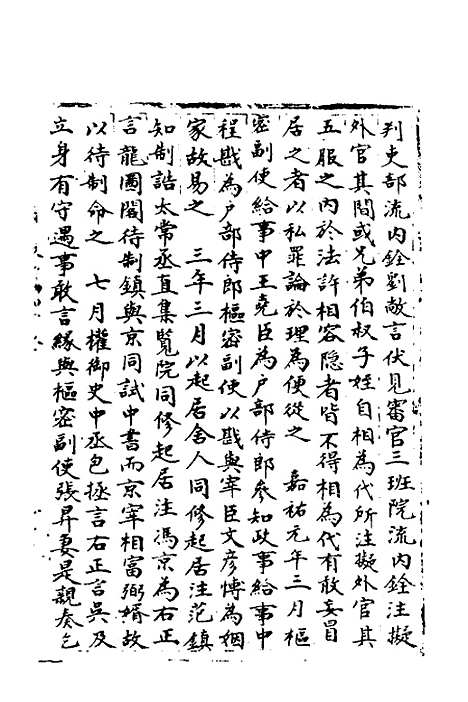 判吏部流内銓劉敞言伏見審官三班院流内銓注擬
外官其間或兄弟伯叔子姪自相為代所注擬外官其
五服之内於法許相容隐者皆不得相為代有敢妄冒
居之者以私罪論於理為便從之　嘉祐元年三月樞
密副使給事中王堯臣為户部侍郎參知政事給事中
程戡為户部侍郎樞密副使以戡與宰臣文彦愽為姻
家故易之　三年三月以起居舍人同修起居注范鎮
知制誥太常丞直集覧院同修起居注馮京為右正
言龍圖閣待制鎮與京同試中書而京宰相富弼婿故
以待制命之　七月權御史中丞包拯言右正言吳及
立身有守遇事敢言緣與樞密副使張昇妻是親奏乞